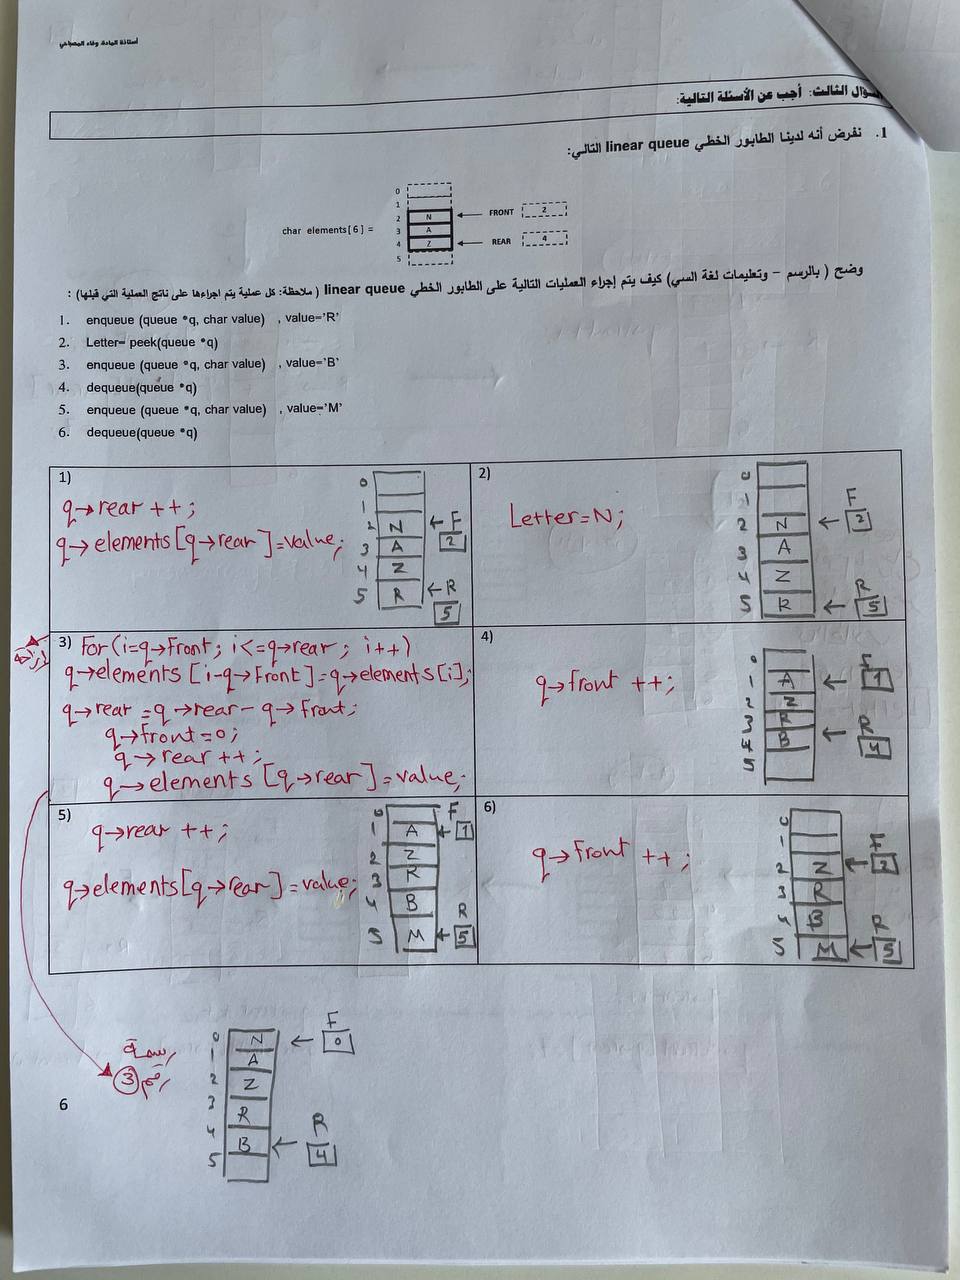 أستاذة المادة: وفاء المصباحي
السؤال الثالث: أجب عن الأسئلة التالية:
1. نفرض أنه لدينا الطابور الخطي linear queue التالي:
char elements[6] =
0
1
2 N FRONT 2
3 A
4 Z REAR 4
5
وضح ( بالرسم – وتعليمات لغة السي) كيف يتم إجراء العمليات التالية على الطابور الخطي linear queue ( ملاحظة: كل عملية يتم اجراءها على ناتج العملية التي قبلها) :
1. enqueue (queue *q, char value) , value='R'
2. Letter= peek(queue *q)
3. enqueue (queue *q, char value) , value='B'
4. dequeue(queue *q)
5. enqueue (queue *q, char value) , value='M'
6. dequeue(queue *q)
1)
q→rear ++;
q→elements[q→rear]=value;
0
1
2 N ← F 2
3 A
4 Z
5 R ← R 5
2)
Letter=N;
0
1
2 N ← F 2
3 A
4 Z
5 R ← R 5
3) For(i=q→Front; i<=q→rear; i++)
q→elements[i-q→Front]=q→elements[i];
q→rear=q→rear-q→Front;
q→front=0;
q→rear++;
q→elements[q→rear]=value;
4)
q→front ++;
0
1 A ← F 1
2 Z
3 R
4 B ← R 4
5
5)
q→rear ++;
q→elements[q→rear]=value;
0
1 A ← F 1
2 Z
3 R
4 B
5 M ← R 5
6)
q→Front ++;
0
1
2 Z ← F 2
3 R
4 B
5 M ← R 5
رسمة
رقم 3
0 N ← F 0
1 A
2 Z
3 R
4 B ← R 4
5
6